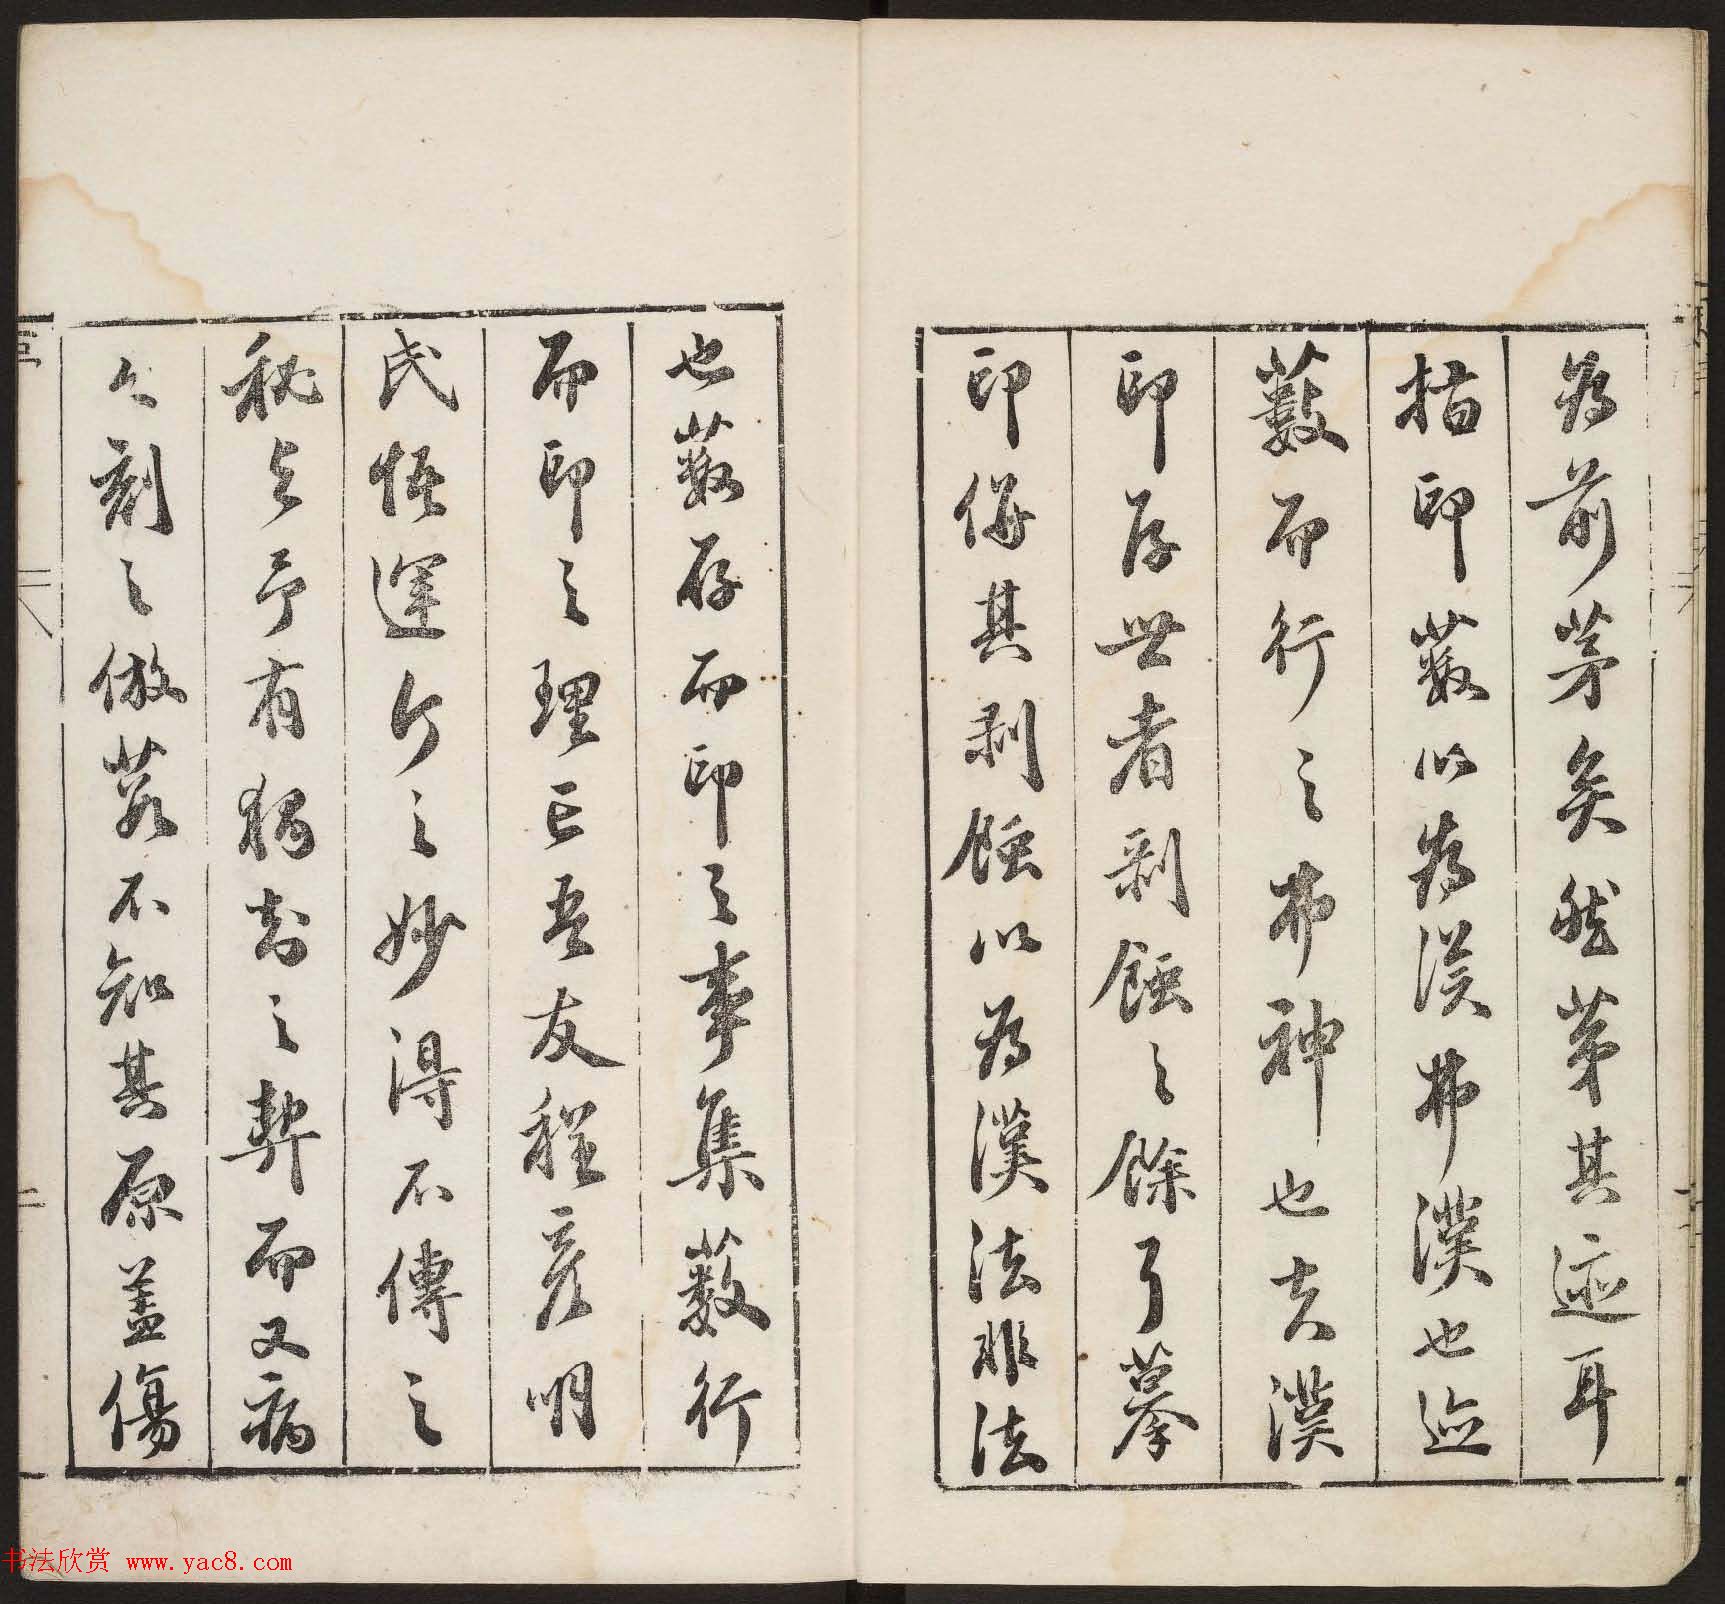 為前茅矣然苐其迹耳
指印藪以為漢弗漢也迹
藪而行之弗神也夫漢
印存世者剥蝕之餘耳摹
印併其剥蝕以為漢法非法
也藪存而印之事集藪行
而印之理亡吾友程彦明
氏悟運斤之妙得不傳之
秘与予有獨知之契而又病
今刻之倣藪不知其原盖傷
书法欣赏 www.yac8.com